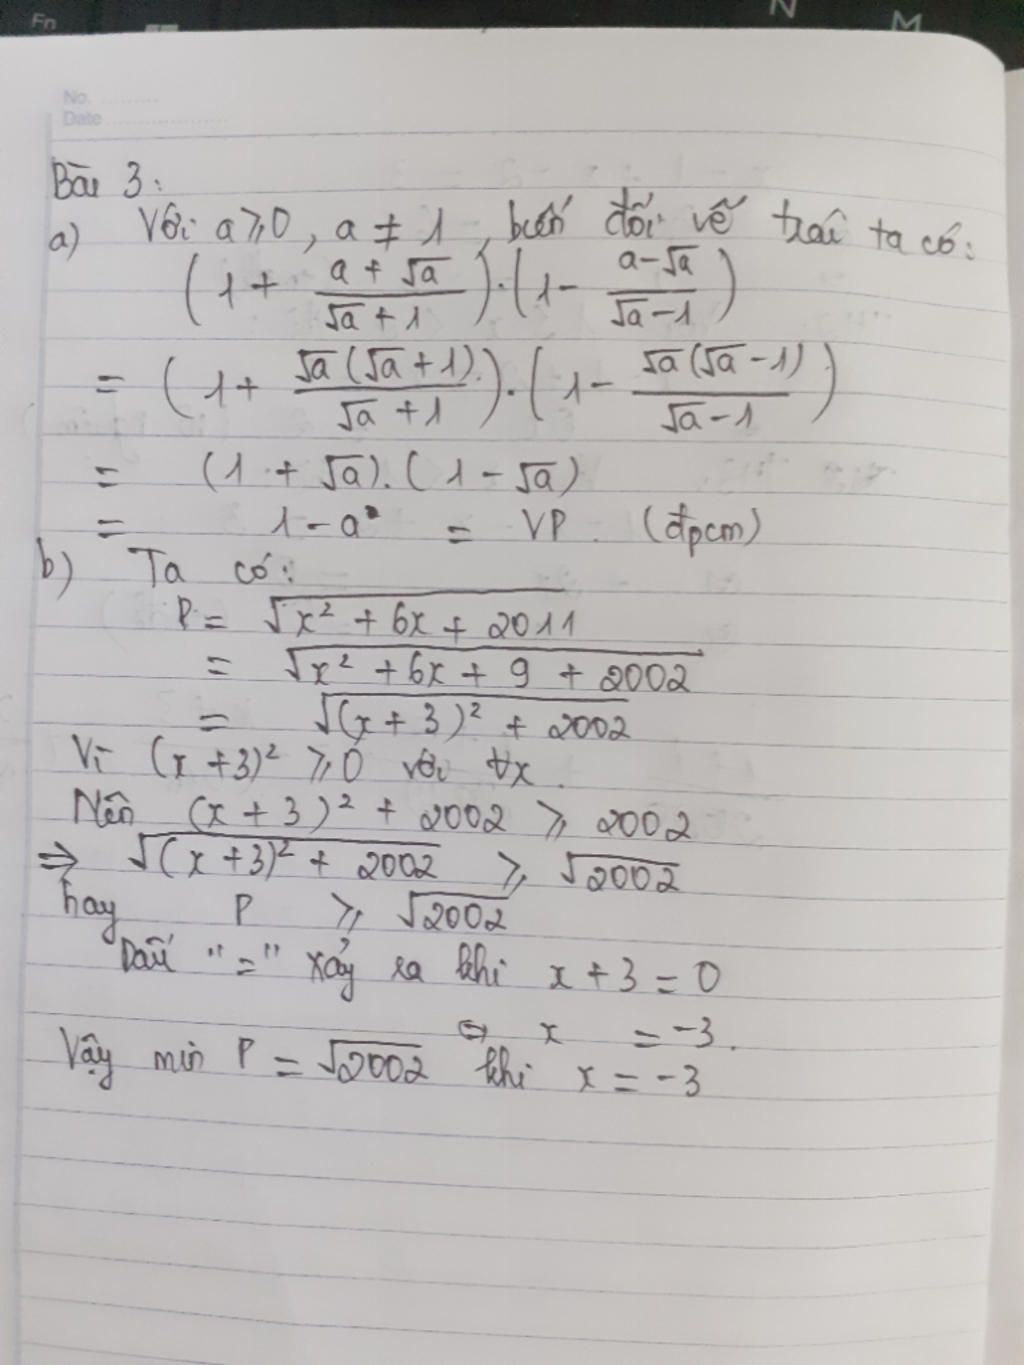 Fn
N
M
No. ..........
Date ....................
Bài 3:
a) Với a ⩾ 0, a ≠ 1, biến đổi vế trái ta có:
(1 + (a + √a)/(√a + 1)) . (1 - (a - √a)/(√a - 1))
= (1 + √a(√a + 1)/(√a + 1)) . (1 - √a(√a - 1)/(√a - 1))
= (1 + √a).(1 - √a)
= 1 - a = VP. (đpcm)
b) Ta có:
P = √(x² + 6x + 2011)
= √(x² + 6x + 9 + 2002)
= √((x + 3)² + 2002)
Vì (x + 3)² ⩾ 0 với ∀x.
Nên (x + 3)² + 2002 ⩾ 2002
⇒ √((x + 3)² + 2002) ⩾ √2002
hay P ⩾ √2002
Dấu "=" xảy ra khi x + 3 = 0
⇔ x = -3.
Vậy min P = √2002 khi x = -3